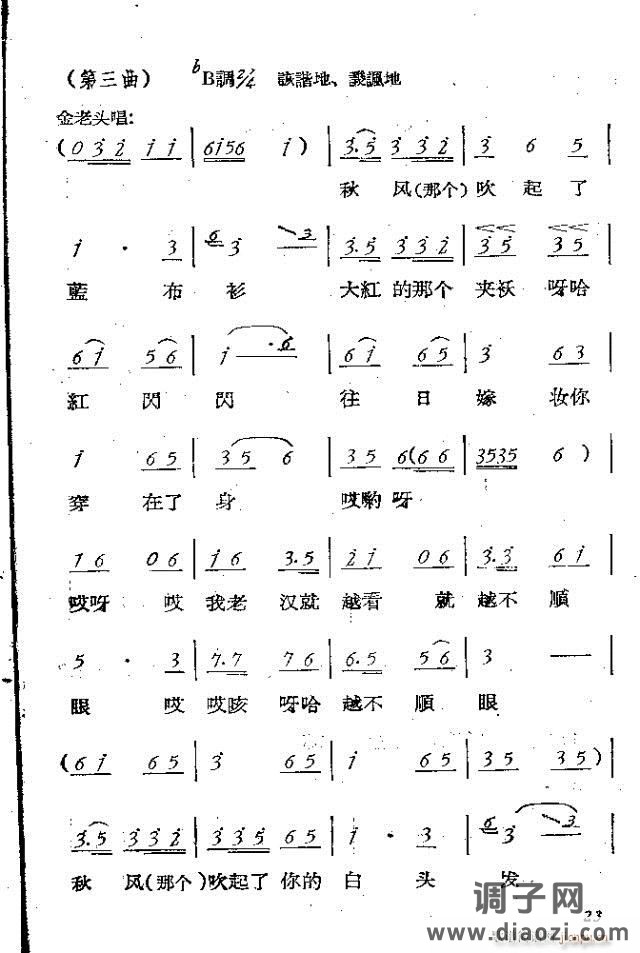 （第三曲） ᵇB調2/4 詼諧地、譏諷地
金老头唱:
(0 3 2 1 1 | 6156 1) | 3.5 3 3 2 | 3 6 5 |
秋风(那个)吹起了
1 · 3 | 6 3 3 | 3.5 3 3 2 | 3 5 3 5 |
藍布衫 大紅的那个夹袄呀哈
6 1 5 6 | 1 · 6 | 6 1 6 5 | 3 6 3 |
紅閃閃 往日嫁妆你
1 6 5 | 3 5 6 | 3 5 6(6 6 | 3535 6) |
穿在了身 哎喲呀
1 6 0 6 | 1 6 3.5 | 2 1 0 6 | 3.3 6 1 |
哎呀 哎我老汉就越看 就越不順
5 · 3 | 7.7 7 6 | 6.5 5 6 | 3 — |
眼 哎哎咳呀哈越不順眼
(6 1 6 5 | 3 6 5 | 1 6 5 | 3 5 3 5) |
3.5 3 3 2 | 3 3 5 6 5 | 1 · 3 | 6 3 3
秋风(那个)吹起了你的白头发
23
调子网
www.diaozi.com